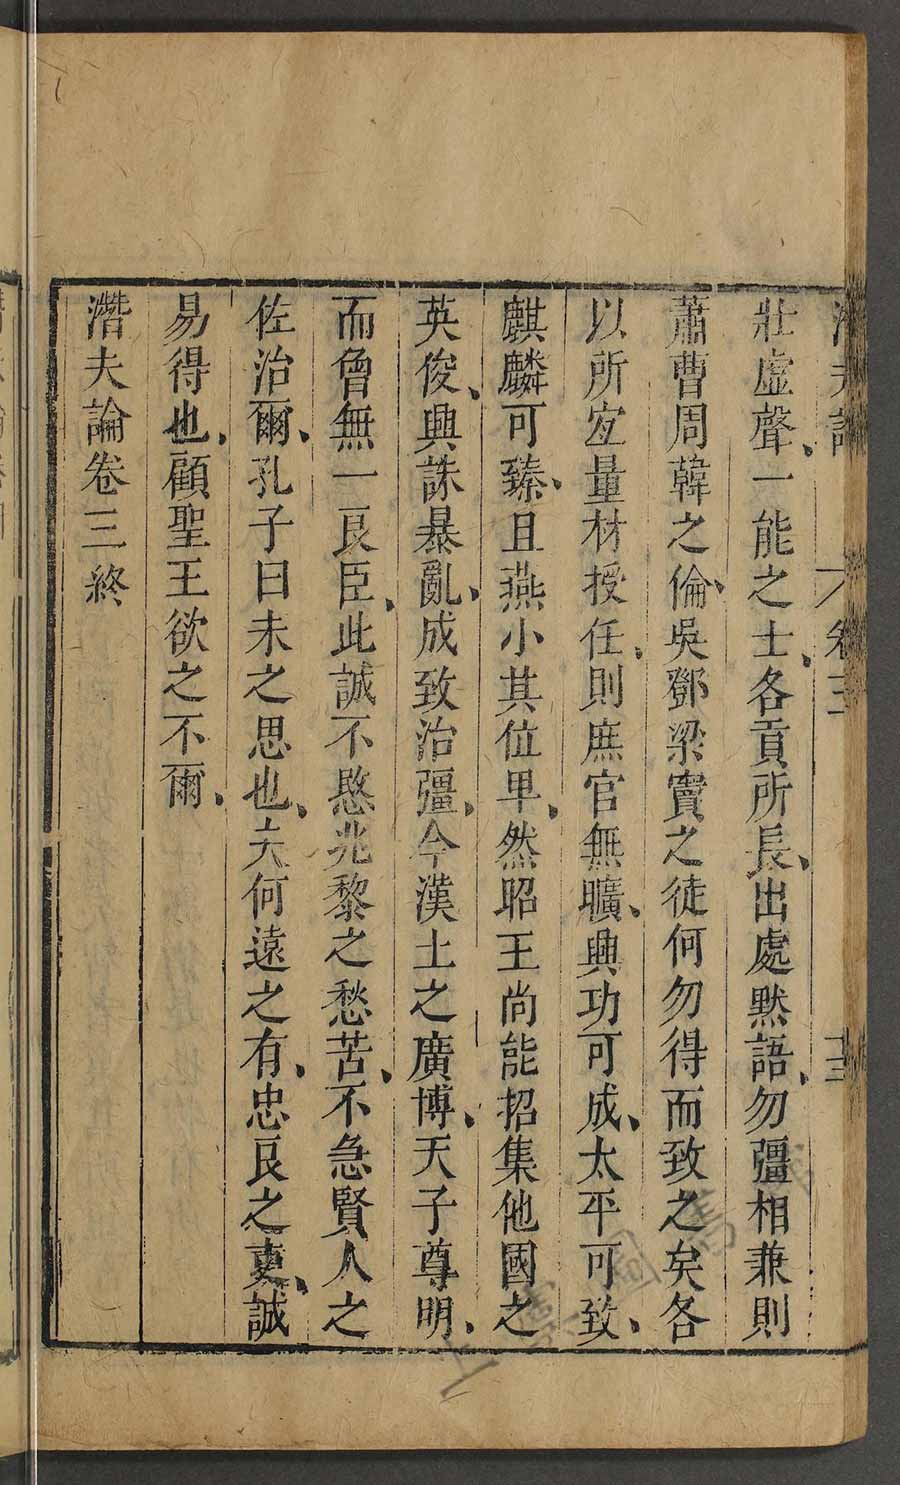 壯虛聲、一能之士、各貢所長、出處黙語、勿彊相兼則
蕭曹周韓之倫、吳鄧梁竇之徒何勿得而致之矣各
以所宐量材授任、則庶官無曠、興功可成、太平可致、
麒麟可臻、且燕小其位卑、然昭王尚能招集他國之
英俊、興誅暴亂、成致治彊、今漢土之廣博、天子尊明、
而曾無一良臣、此誠不愍兆黎之愁苦、不急賢人之
佐治爾、孔子曰未之思也、夫何遠之有、忠良之吏、誠
易得也、顧聖王欲之不爾、
潛夫論卷三終